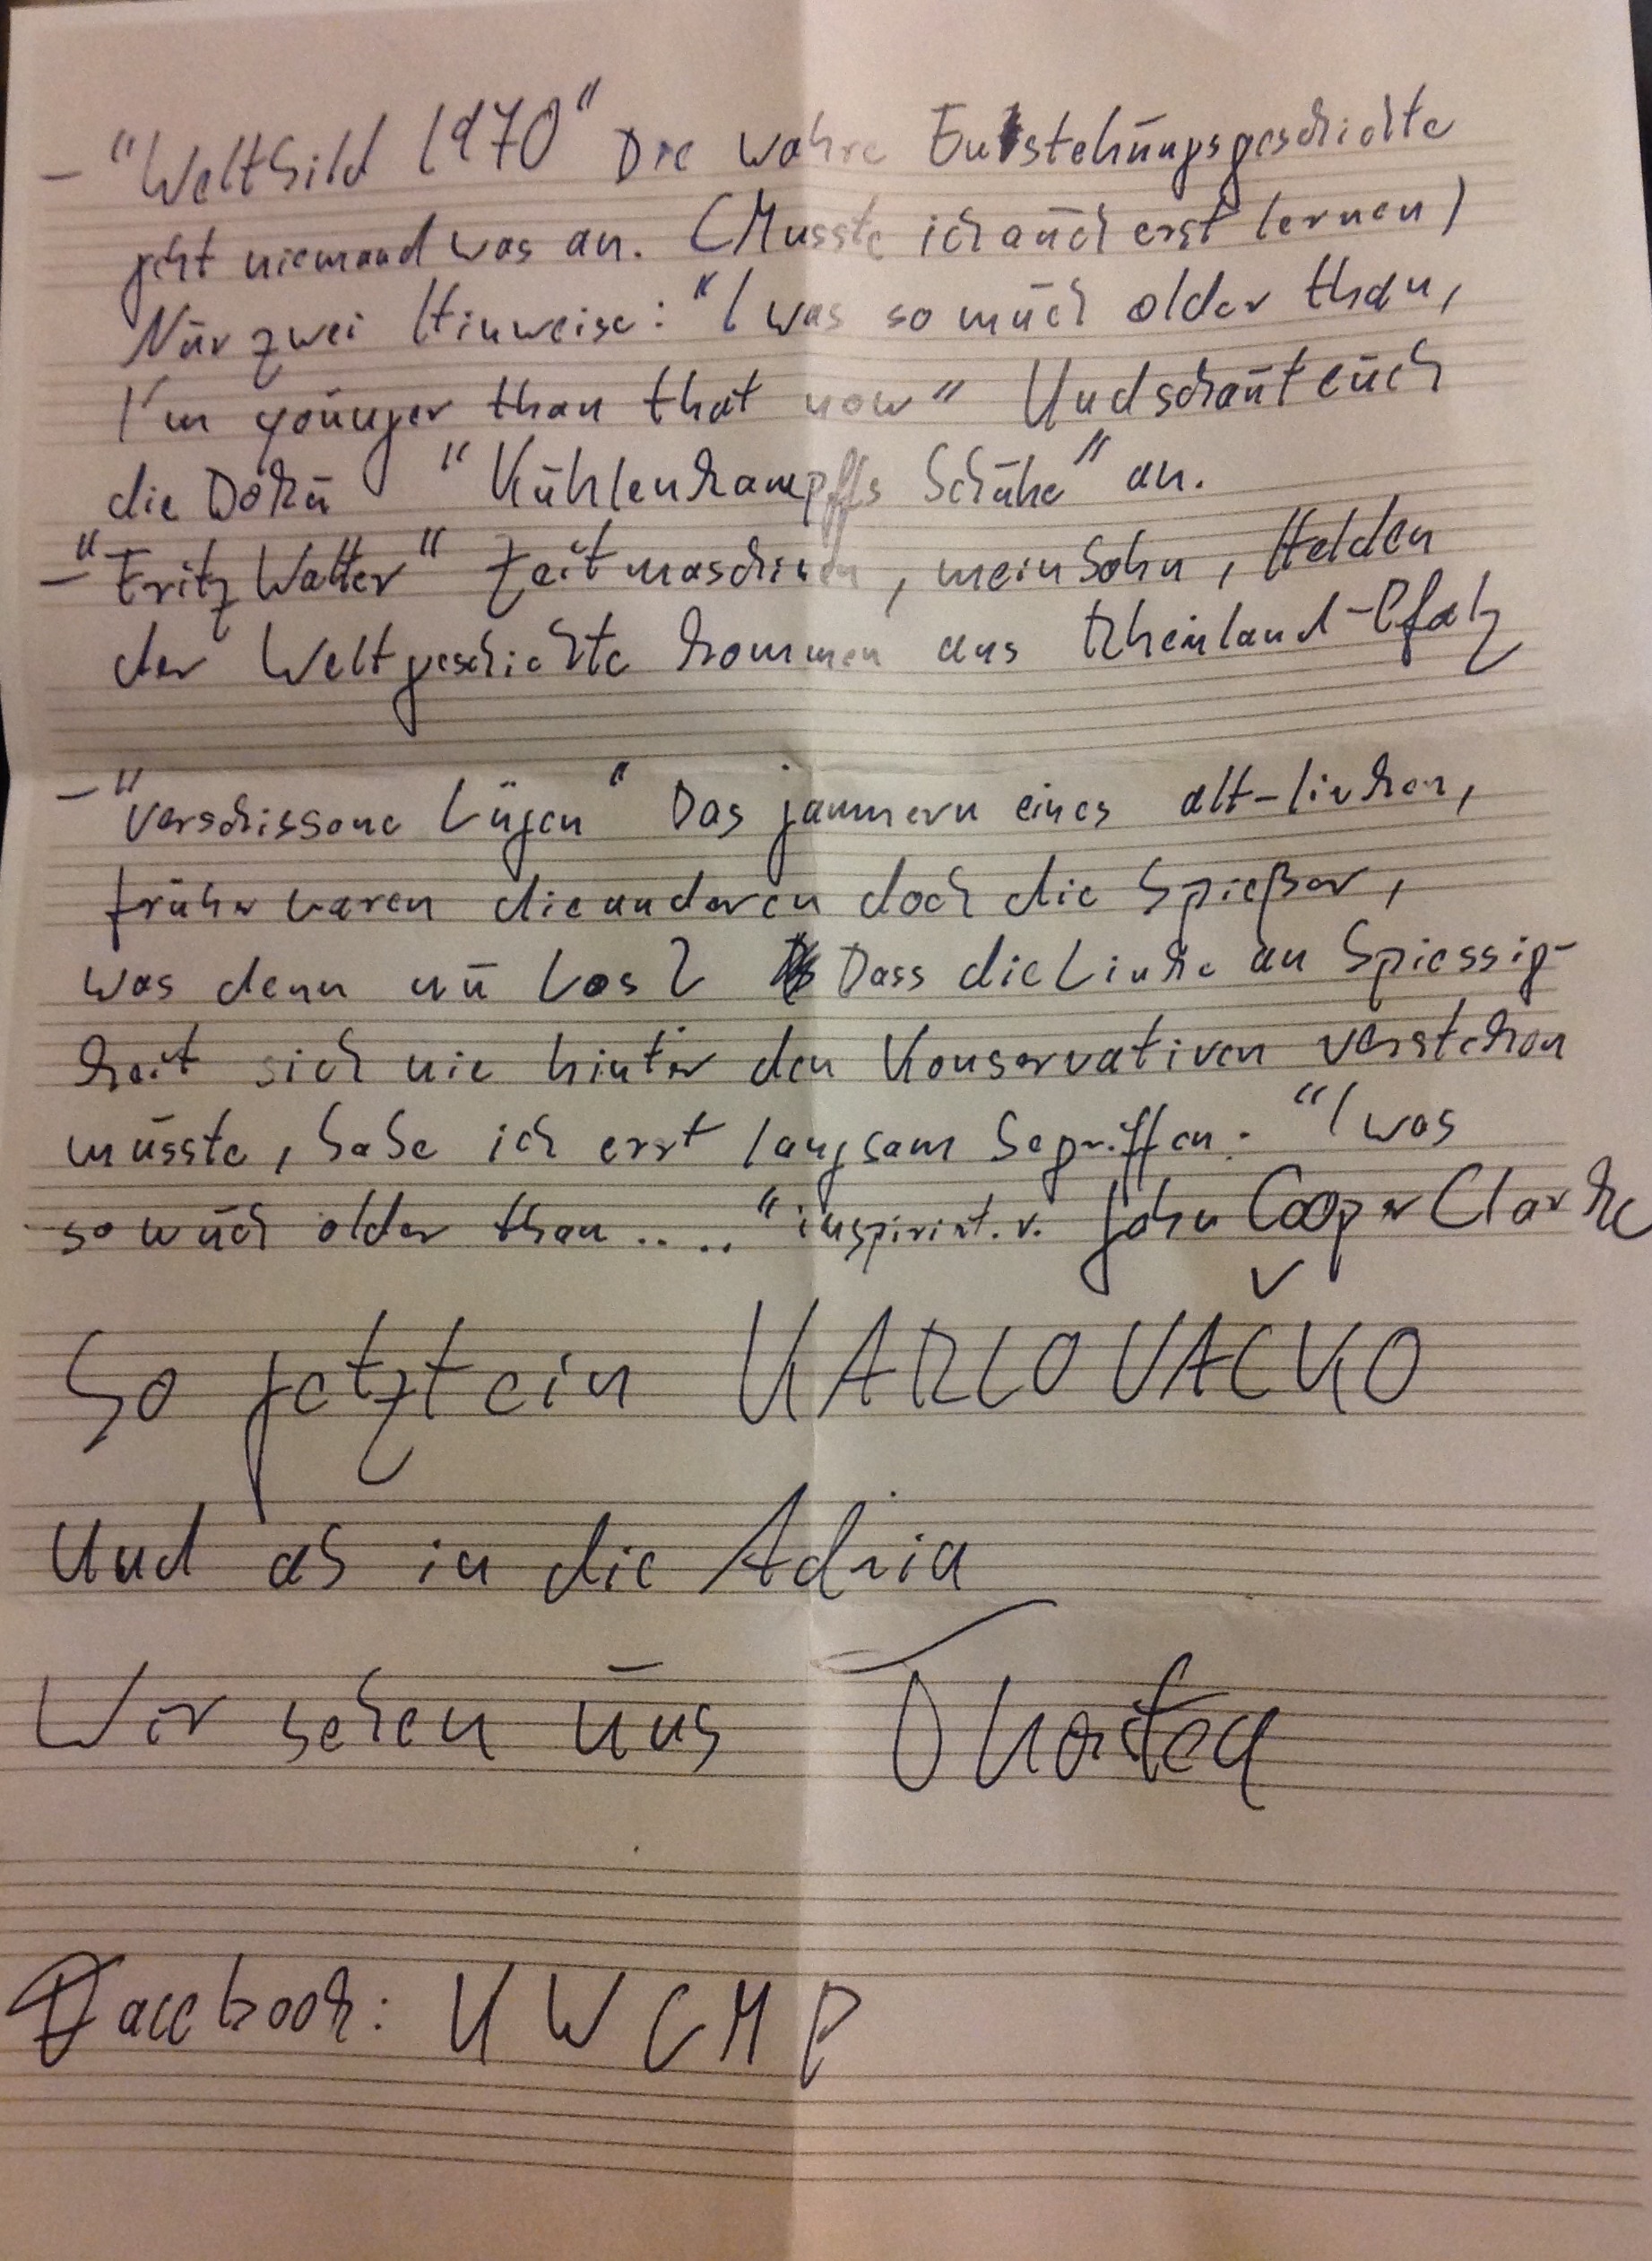 - "Weltbild 1970" Die wahre Entstehungsgeschichte
geht niemand was an. (Musste ich auch erst lernen)
Nur zwei Hinweise: "I was so much older than,
I'm younger than that now" Und schaut euch
die Doku "Kühlenkampffs Schuhe" an.
- "Fritz Walter" Zeitmaschinen, mein Sohn, Helden
der Weltgeschichte kommen aus Rheinland-Pfalz
- "Verschissene Lügen" Das jammern eines alt-linken,
früher waren die anderen doch die Spießer,
was denn nu los? Dass die Linke an Spiessig-
keit sich nie hinter den Konservativen verstecken
musste, habe ich erst langsam begriffen. "I was
so much older than...." inspiriert. v. John Cooper Clarke
So jetzt ein KARLOVAČKO
Und ab in die Adria
Wir sehen uns Thorsten
Facebook: KWCMP